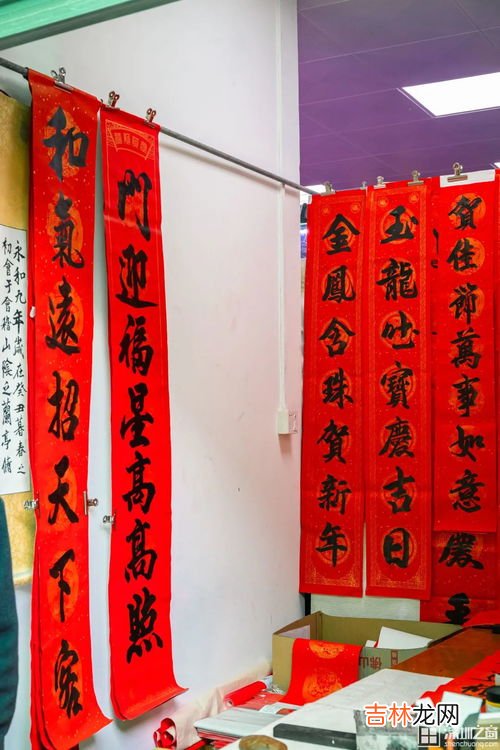 永和九年歲在癸丑暮春之
初會于會稽山陰之蘭亭脩
和氣遠招天下客
門迎福星高高照
金鳳含珠賀新年
玉龍吐寶慶吉日
賀佳節萬事如意
慶
佛山
吉林龙网
深圳之窗
shenchuang.com